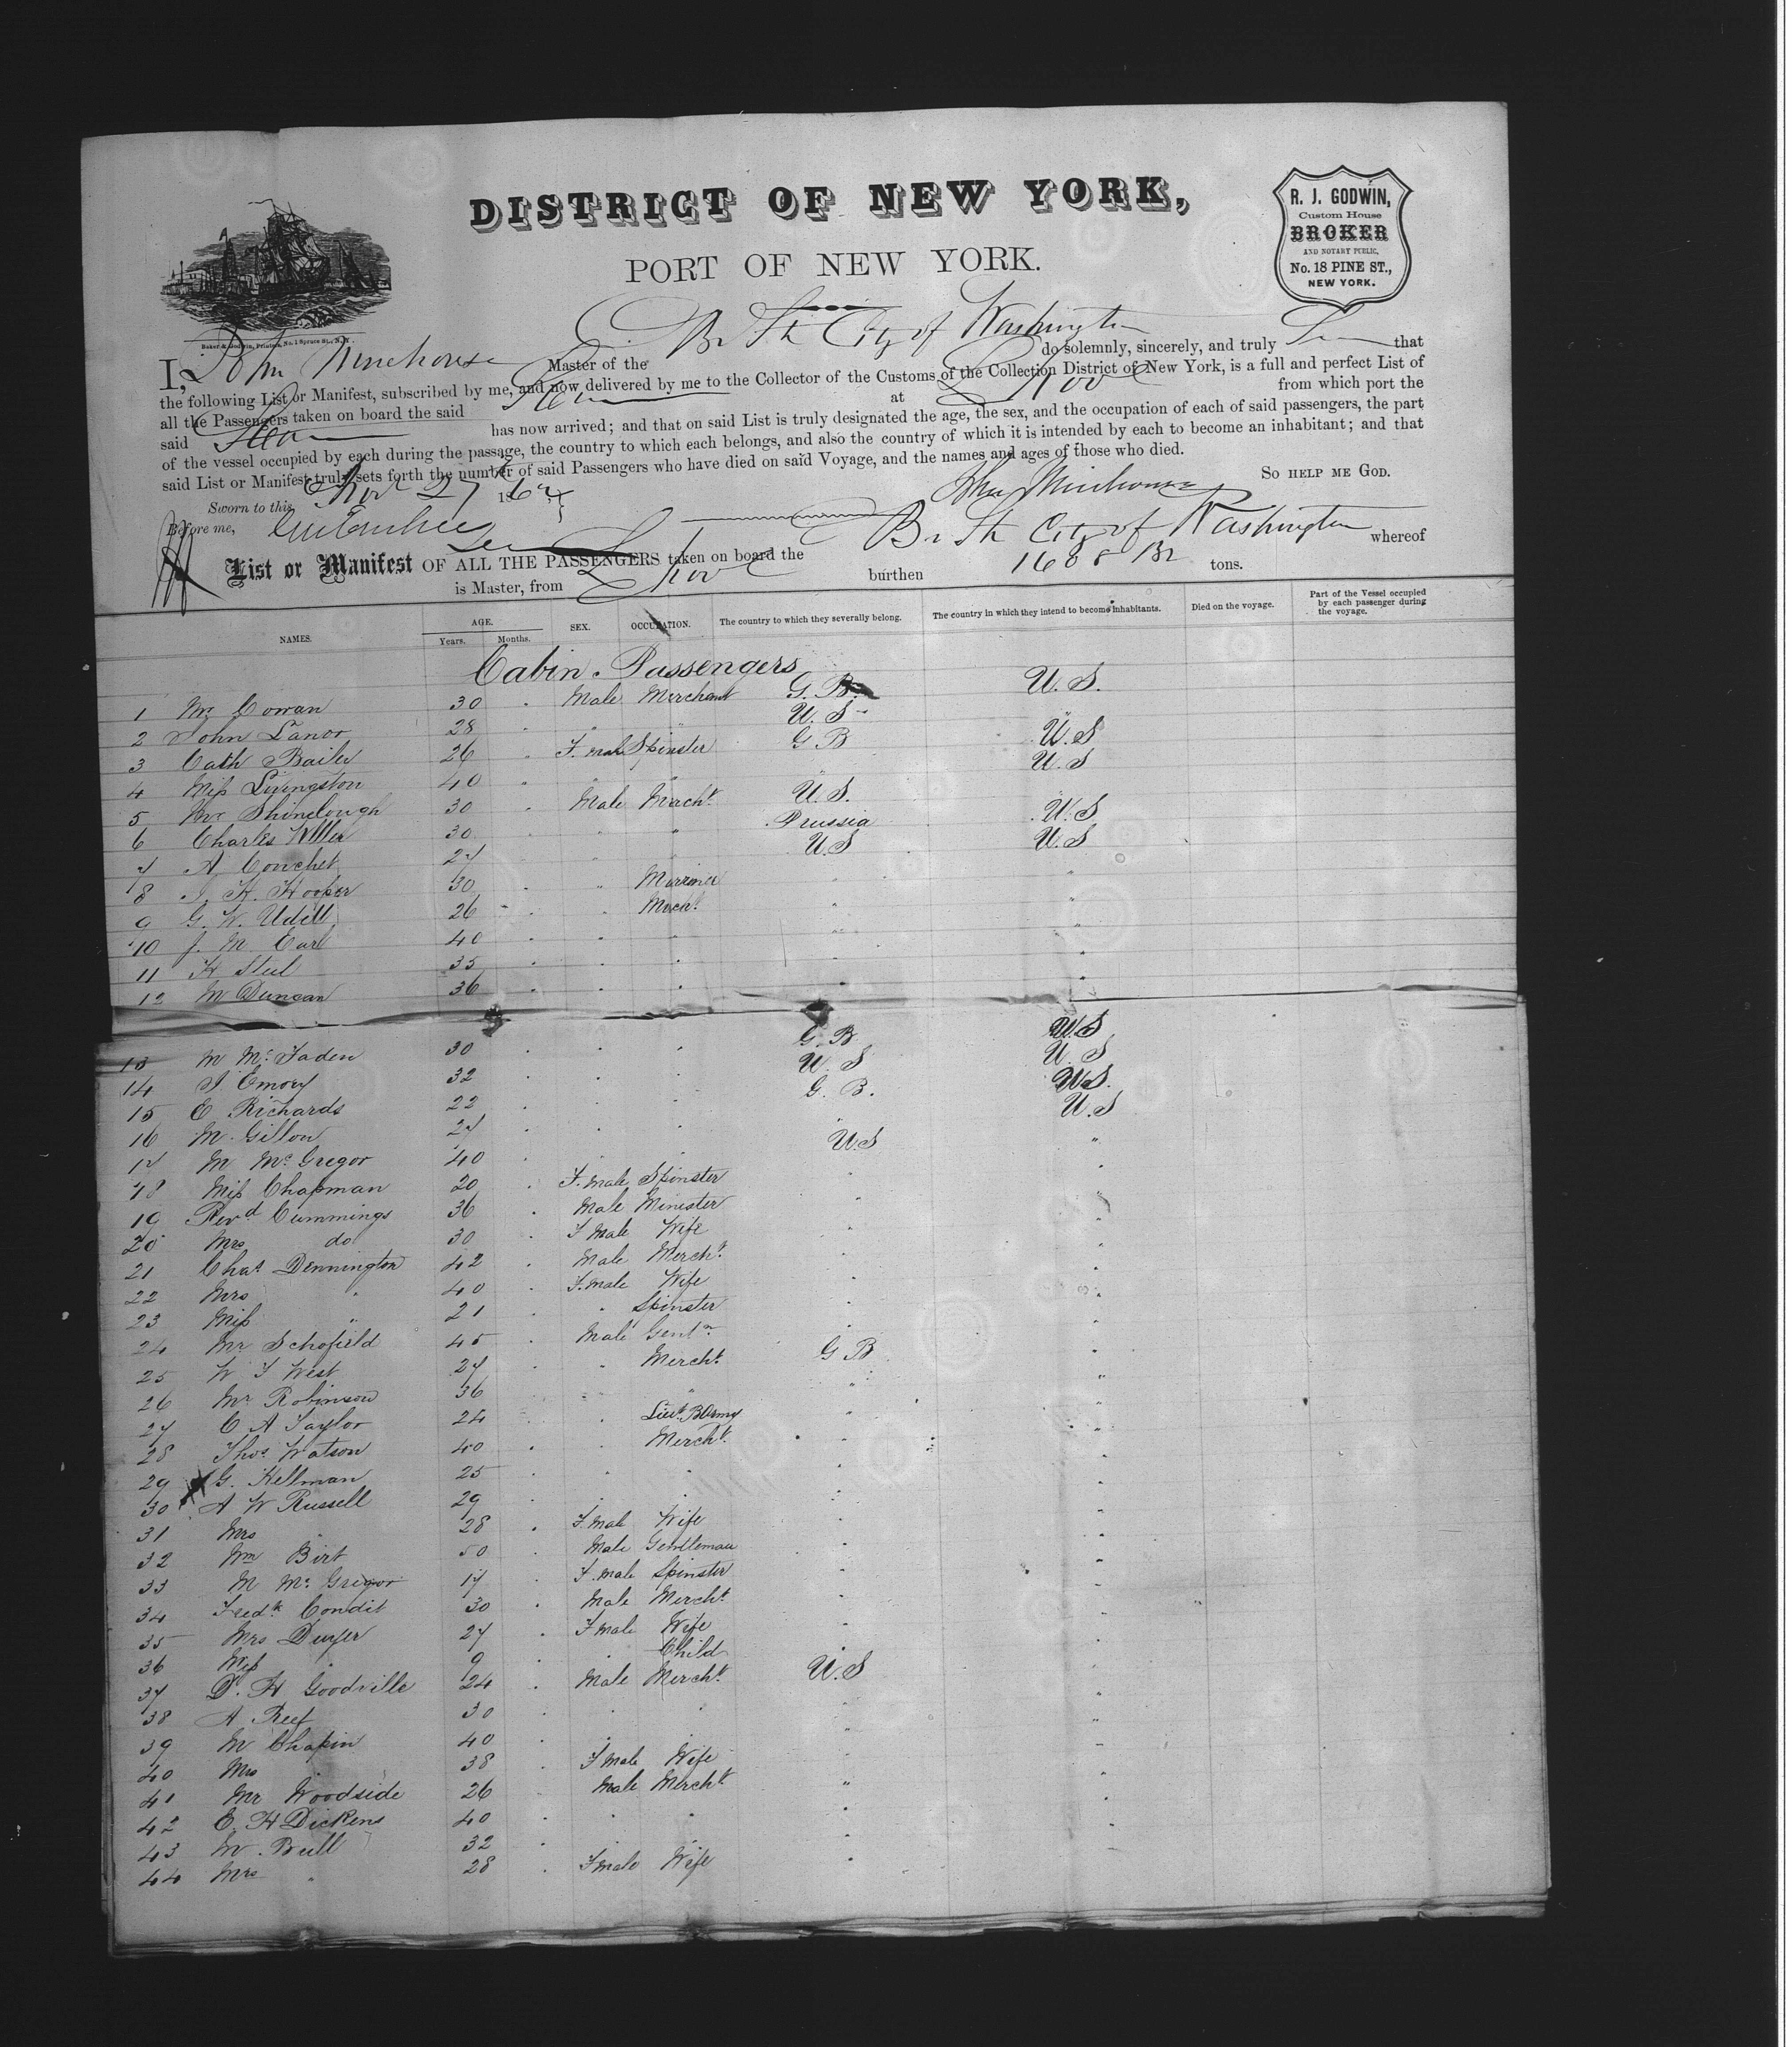 DISTRICT OF NEW YORK,
PORT OF NEW YORK.
R. J. GODWIN,
Custom House
BROKER
AND NOTARY PUBLIC,
No. 18 PINE ST.,
NEW YORK.
Baker & Godwin, Printers, No. 1 Spruce St., N.Y.
I, John Mirehouse Master of the Br St City of Washington do solemnly, sincerely, and truly that
the following List or Manifest, subscribed by me, and now delivered by me to the Collector of the Customs of the Collection District of New York, is a full and perfect List of
all the Passengers taken on board the said at L'pool from which port the
said has now arrived; and that on said List is truly designated the age, the sex, and the occupation of each of said passengers, the part
of the vessel occupied by each during the passage, the country to which each belongs, and also the country of which it is intended by each to become an inhabitant; and that
said List or Manifest truly sets forth the number of said Passengers who have died on said Voyage, and the names and ages of those who died.
SO HELP ME GOD.
Sworn to this 186
John Mirehouse
Before me,
List or Manifest OF ALL THE PASSENGERS taken on board the Br St City of Washington whereof
is Master, from L'pool burthen 1688 tons.
NAMES. AGE. Years. Months. SEX. OCCUPATION. The country to which they severally belong. The country in which they intend to become inhabitants. Died on the voyage. Part of the Vessel occupied by each passenger during the voyage.
Cabin Passengers
1 Mr Cowan 30 Male Merchant G. B. U. S.
2 John Lanor 28 " " U. S "
3 Cath Bailer 26 F. male Spinster G B U. S
4 Miss Livingston 40 " " " U. S
5 Mr Shinelough 30 Male Mercht U. S. "
6 Charles Weller 30 " " Prussia U. S
7 A. Couchet 27 " " U. S U. S
8 J. H. Hooper 30 " Marriner " "
9 G. W. Udell 26 " Mercht " "
10 J. M. Earl 40 " " " "
11 H Steel 35 " " " "
12 M Duncan 36 " " " "
13 M McFaden 30 " " G. B U. S
14 J. Emory 32 " " U. S U. S
15 E Richards 22 " " G. B. U. S.
16 M. Gillow 27 " " " U. S
17 M McGregor 40 " " U. S "
18 Miss Chapman 20 F. male Spinster " "
19 Revd Cummings 36 Male Minister " "
20 Mrs do 30 F male Wife " "
21 Chas Dennington 42 Male Mercht " "
22 Mrs " 40 F. male Wife " "
23 Miss " 21 " Spinster " "
24 Mr Schofield 45 Male Gentn " "
25 W T West 27 " Mercht G B "
26 Mr Robinson 36 " " " "
27 C A Taylor 24 " Lieut B Army " "
28 Thos Watson 40 " Mercht " "
29 G. Hellman 25 " " " "
30 A W Russell 29 " " " "
31 Mrs " 28 F. male Wife " "
32 Wm Birt 50 Male Gentleman " "
33 M McGregor 17 F. male Spinster " "
34 Fredk Condit 30 Male Mercht " "
35 Mrs Duyer 27 F male Wife " "
36 Miss " 9 " Child " "
37 D. H Goodville 24 Male Mercht U. S "
38 A Reef 30 " " " "
39 M Chapin 40 " " " "
40 Mrs " 38 F male Wife " "
41 Mr Woodside 26 Male Mercht " "
42 E. H Dickens 40 " " " "
43 M. Bull 32 " " " "
44 Mrs " 28 F male Wife " "